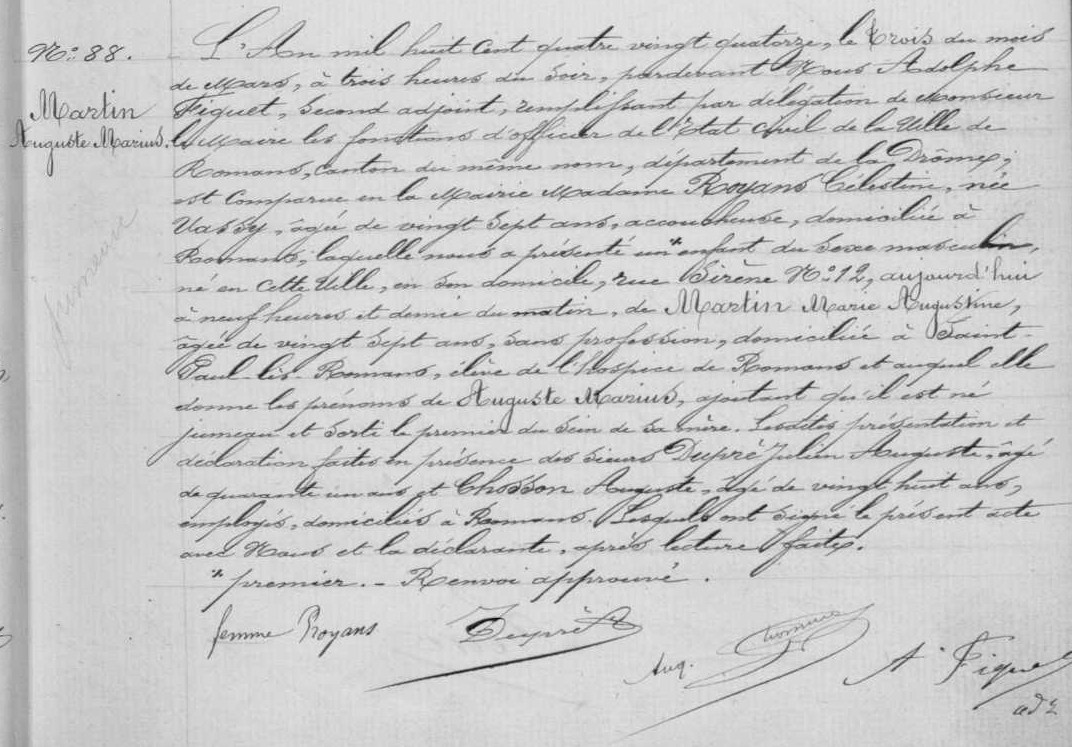 N° 88.
Martin
Auguste Marius.
jumeau
L'An mil huit cent quatre vingt quatorze, le trois du mois
de Mars, à trois heures du soir, pardevant Nous Adolphe
Fiquet, second adjoint, remplissant par délégation de Monsieur
le Maire les fonctions d'officier de l'Etat civil de la Ville de
Romans, canton du même nom, département de la Drôme,
est comparue en la Mairie Madame Royans Célestine, née
Vassy, âgée de vingt sept ans, accoucheuse, domiciliée à
Romans, laquelle nous a présenté un * enfant du sexe masculin,
né en cette Ville, en son domicile, rue Sirène N° 12, aujourd'hui
à neuf heures et demie du matin, de Martin Marie Augustine,
âgée de vingt sept ans, sans profession, domiciliée à Saint-
Paul-lès-Romans, élève de l'hospice de Romans et auquel elle
donne les prénoms de Auguste Marius, ajoutant qu'il est né
jumeau et sorti le premier du sein de sa mère. Lesdites présentation et
déclaration faites en présence des sieurs Dupré Julien Auguste, âgé
de quarante un ans et Chosson Auguste, âgé de vingt huit ans,
employés, domiciliés à Romans. Lesquels ont signé le présent acte
avec Nous et la déclarante, après lecture faite.
* premier. - Renvoi approuvé.
femme Royans
Dupré
Aug.
A. Fiquet
ad 2